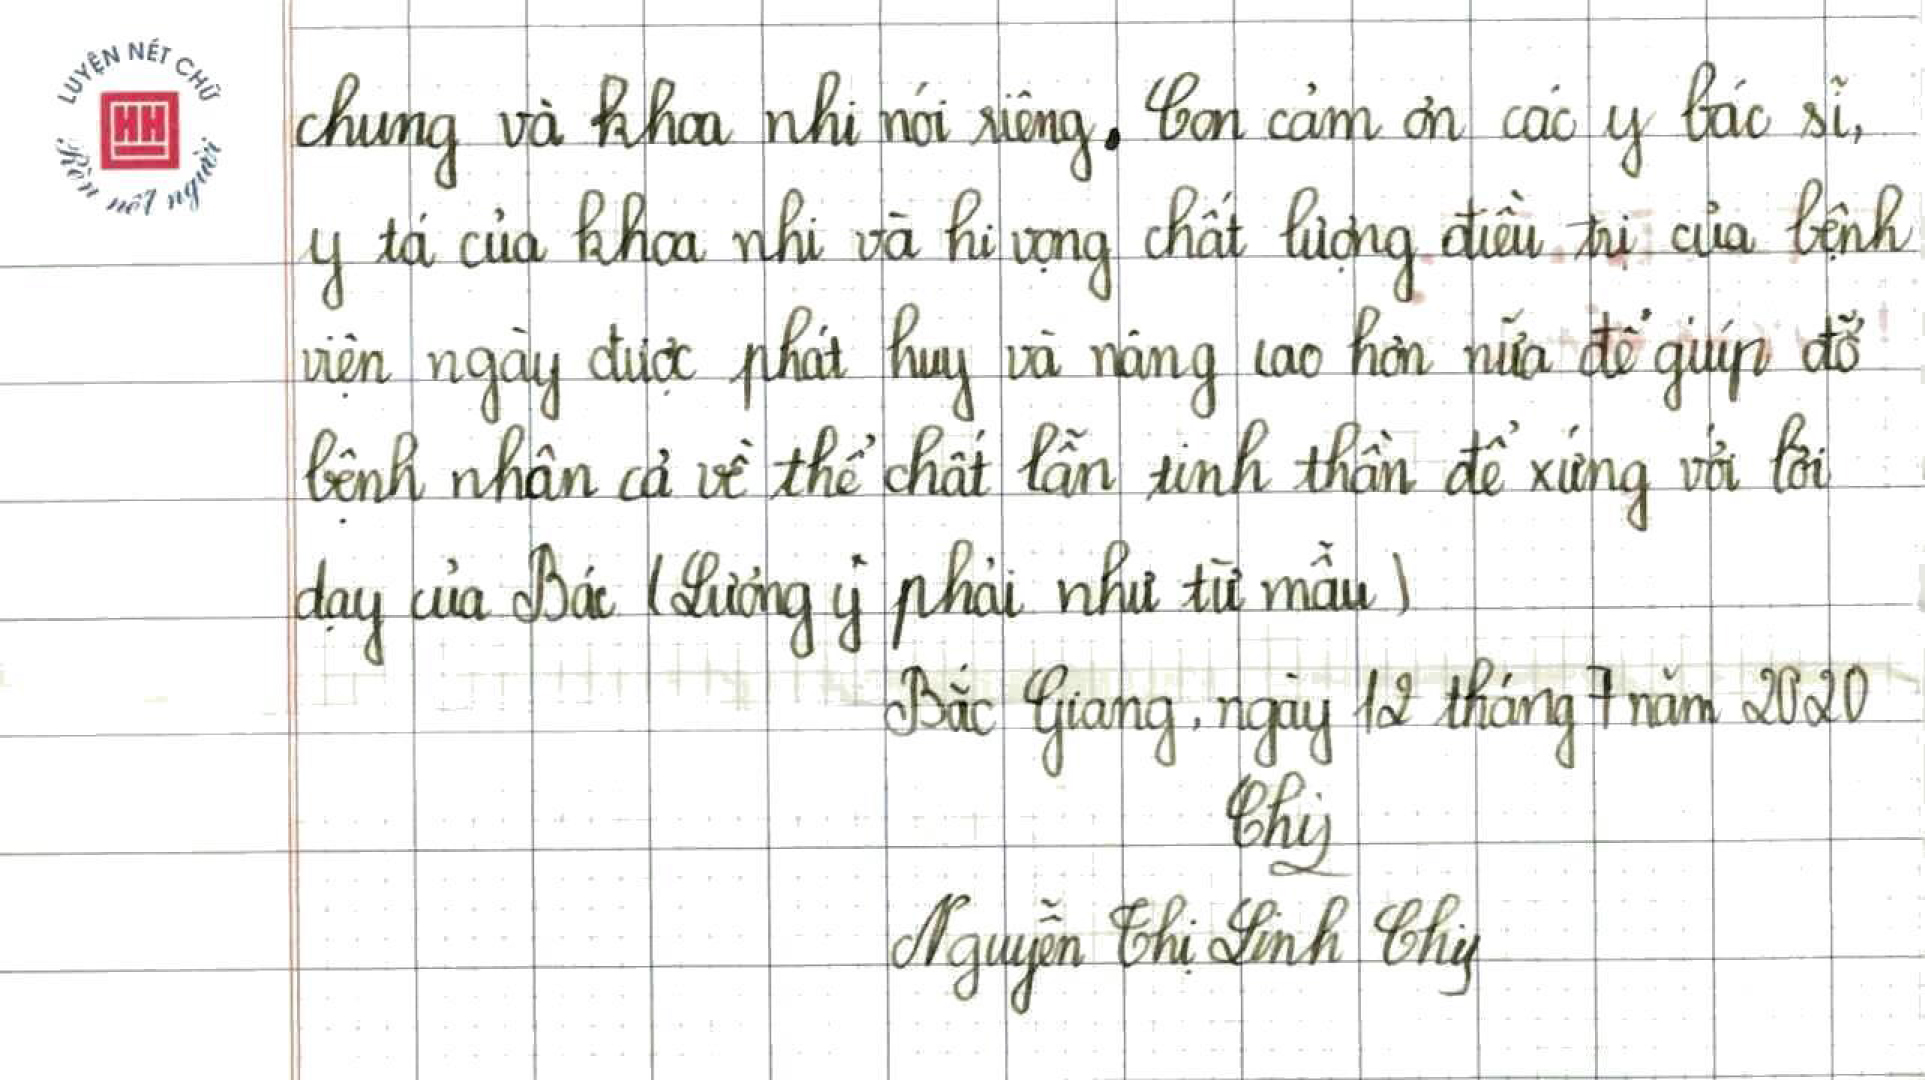 LUYỆN NÉT CHỮ
HH
Rèn nết người
chung và khoa nhi nói riêng. Con cảm ơn các y bác sĩ,
y tá của khoa nhi và hi vọng chất lượng điều trị của bệnh
viện ngày được phát huy và nâng cao hơn nữa để giúp đỡ
bệnh nhân cả về thể chất lẫn tinh thần để xứng với lời
dạy của Bác (Lương y phải như từ mẫu)
Bắc Giang, ngày 12 tháng 7 năm 2020
Thy
Nguyễn Thị Linh Chi